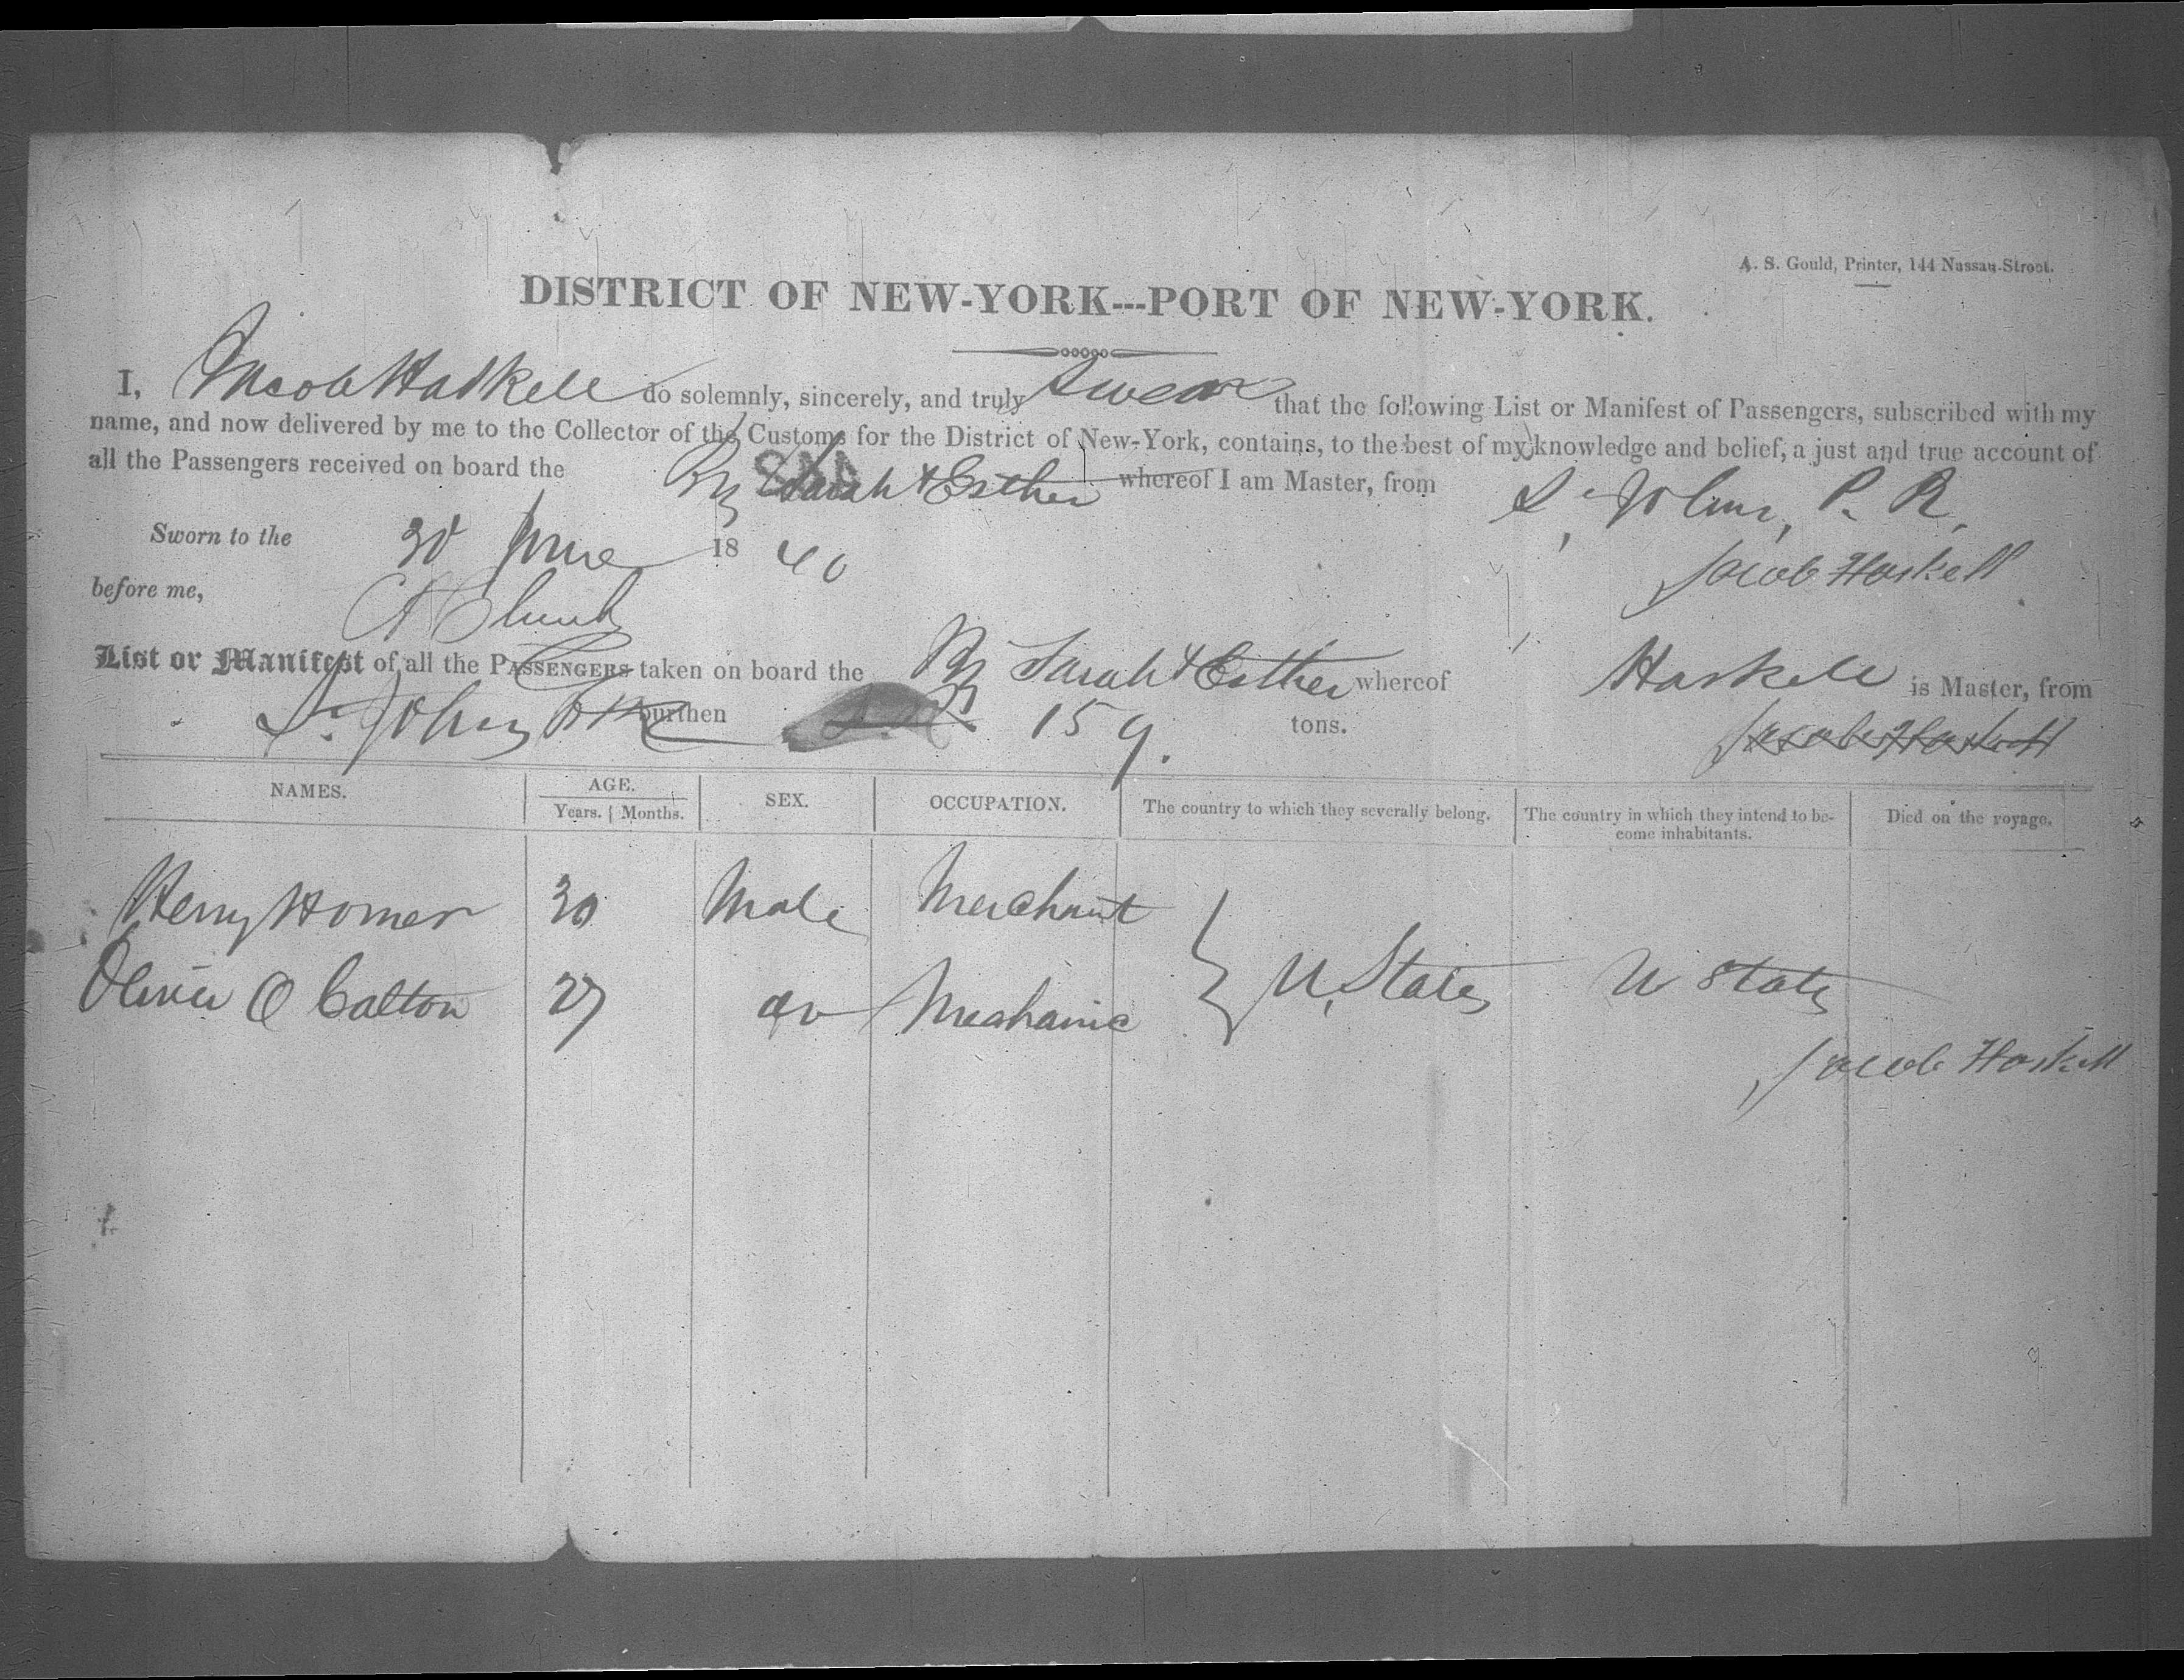 A. S. Gould, Printer, 144 Nassau-Street.
DISTRICT OF NEW-YORK---PORT OF NEW-YORK.
I, Jacob Haskell do solemnly, sincerely, and truly swear that the following List or Manifest of Passengers, subscribed with my
name, and now delivered by me to the Collector of the Customs for the District of New-York, contains, to the best of my knowledge and belief, a just and true account of
all the Passengers received on board the Brig Sarah & Esther whereof I am Master, from St. Johns, P. R.
Sworn to the 30 June 1840
Jacob Haskell
before me,
List or Manifest of all the PASSENGERS taken on board the Brig Sarah & Esther whereof Haskell is Master, from
St. Johns P R burthen 159. tons.
Jacob Haskell
NAMES. AGE. SEX. OCCUPATION. The country to which they severally belong. The country in which they intend to be- Died on the voyage.
Years. Months. come inhabitants.
Henry Homer 30 Male Merchant
U. States U States
Oliver O Colton 27 do Mechanic
Jacob Haskell